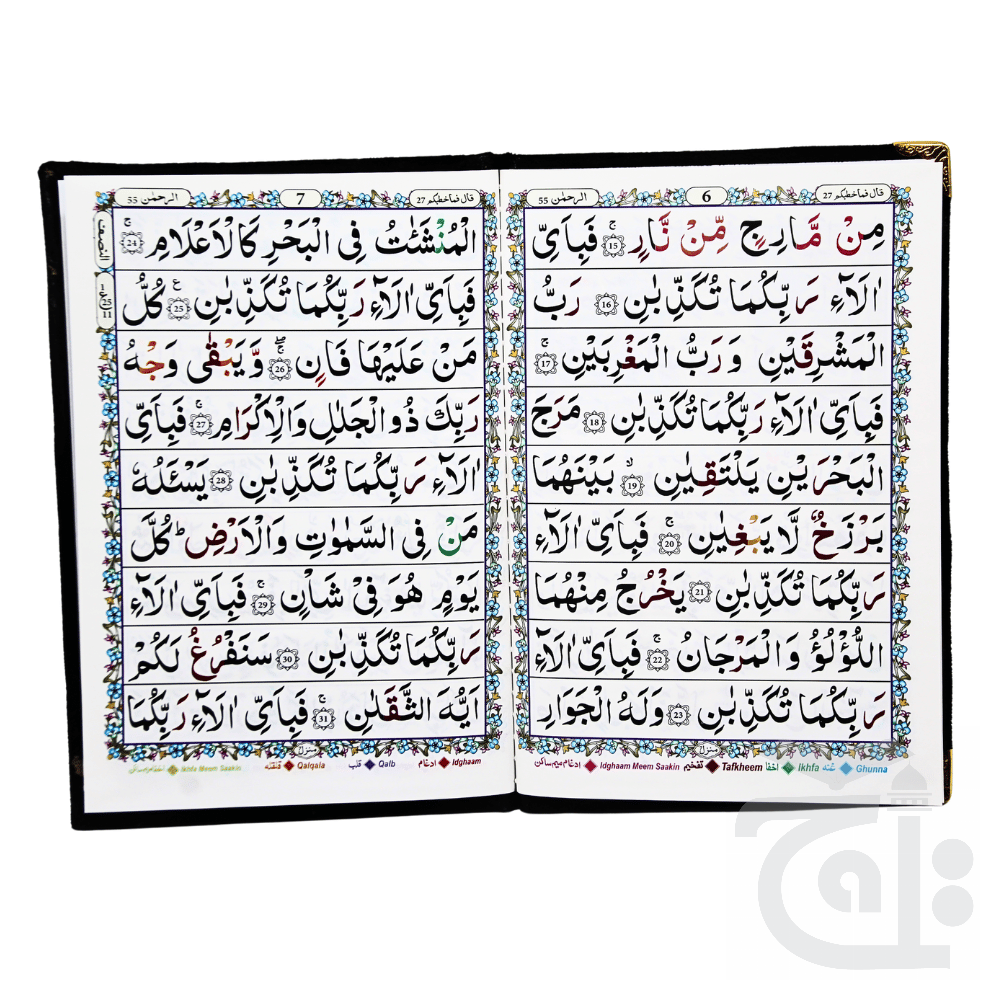 قال فماخطبکم 27
6
الرحمٰن 55
مِنْ مَّارِجٍ مِّنْ نَّارٍ ۚ 15 فَبِاَیِّ
اٰلَآءِ رَبِّکُمَا تُکَذِّبٰنِ 16 رَبُّ
الْمَشْرِقَیْنِ وَ رَبُّ الْمَغْرِبَیْنِ ۚ 17
فَبِاَیِّ اٰلَآءِ رَبِّکُمَا تُکَذِّبٰنِ 18 مَرَجَ
الْبَحْرَیْنِ یَلْتَقِیٰنِ ۙ 19 بَیْنَهُمَا
بَرْزَخٌ لَّا یَبْغِیٰنِ ۚ 20 فَبِاَیِّ اٰلَآءِ
رَبِّکُمَا تُکَذِّبٰنِ 21 یَخْرُجُ مِنْهُمَا
اللُّؤْلُؤُ وَ الْمَرْجَانُ ۚ 22 فَبِاَیِّ اٰلَآءِ
رَبِّکُمَا تُکَذِّبٰنِ 23 وَلَهُ الْجَوَارِ
منزل
Ghunna غنه Ikhfa اخفا Tafkheem تفخیم Idghaam Meem Saakin ادغام میم ساکن
قال فماخطبکم 27
7
الرحمٰن 55
النصف
ع 1 25 11
الْمُنْشَـٰٔتُ فِی الْبَحْرِ کَالْاَعْلَامِ ۚ 24
فَبِاَیِّ اٰلَآءِ رَبِّکُمَا تُکَذِّبٰنِ ع 25 کُلُّ
مَنْ عَلَیْهَا فَانٍ ۚۖ 26 وَّ یَبْقٰی وَجْهُ
رَبِّكَ ذُو الْجَلٰلِ وَالْاِکْرَامِ ۚ 27 فَبِاَیِّ
اٰلَآءِ رَبِّکُمَا تُکَذِّبٰنِ 28 یَسْـَٔلُهٗ
مَنْ فِی السَّمٰوٰتِ وَالْاَرْضِ ؕ کُلَّ
یَوْمٍ هُوَ فِیْ شَاْنٍ ۚ 29 فَبِاَیِّ اٰلَآءِ
رَبِّکُمَا تُکَذِّبٰنِ 30 سَنَفْرُغُ لَکُمْ
اَیُّهَ الثَّقَلٰنِ ۚ 31 فَبِاَیِّ اٰلَآءِ رَبِّکُمَا
منزل
Idghaam ادغام Qalb قلب Qalqala قلقله Ikhfa Meem Saakin اخفا میم ساکن
تاج